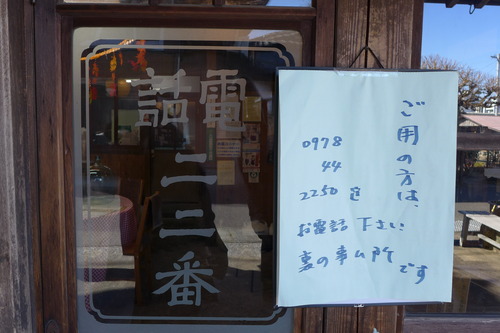 電話
二三番
ご用の方は、
0978
44
2250 迄
お電話下さい
裏の事ム所です